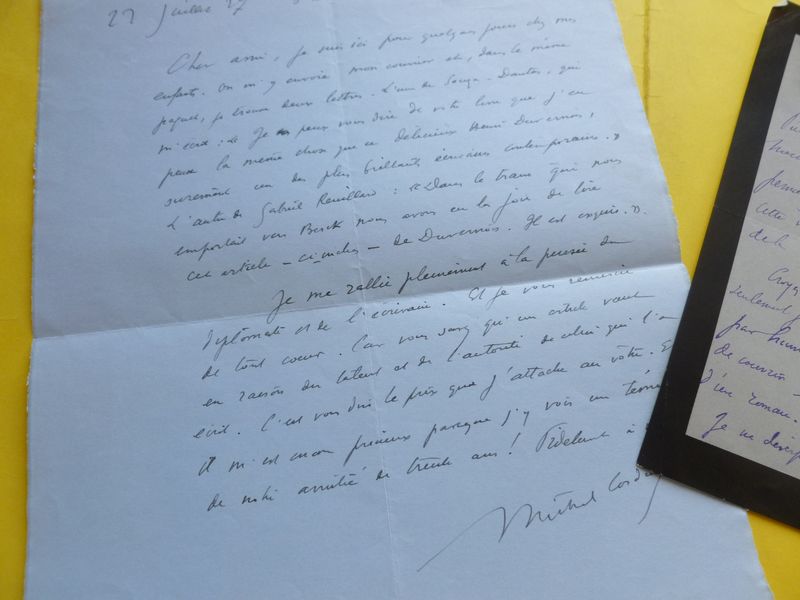 27 Juillet 37
Cher ami, je suis ici pour quelques jours chez mes
enfants. On m'y envoie mon courrier et, dans le même
paquet, je trouve deux lettres. L'une de Souza-Dantas, qui
m'écrit : « Je peux vous dire de votre livre que j'en
pense la même chose que ce délicieux Henri Duvernois,
surement un des plus brillants écrivains contemporains. »
L'autre de Gabriel Reuillard : « Dans le train qui nous
emportait vers Berck nous avons eu la joie de lire
cet article – ci-inclus – de Duvernois. Il est exquis. »
Je me rallie pleinement à la pensée du
diplomate et de l'écrivain. Et je vous remercie
de tout coeur. Car vous savez qu'un article vaut
en raison du talent et de l'autorité de celui qui l'a
écrit. C'est vous dire le prix que j'attache au vôtre. E
il m'est encore précieux parce que j'y vois un
de notre amitié de trente ans ! Fidèlement à
Michel Corday
cette
de l
Croye
seulement
par
de courrier
d'un roman.
Je ne